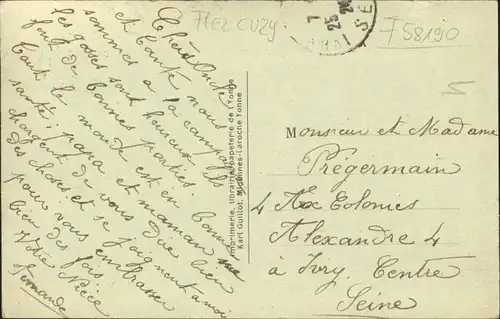 Flez cuzy
F58190
Chers Oncle
et Tante nous
sommes à la campagne
les gosses sont heureux ils
font de bonnes parties.
Tout le monde est en bonne
santé, papa et maman me
chargent de vous dire bien
des choses et se joignent à moi
pour vous embrasser
bien des fois
Votre Nièce
Fernande
Imprimerie, Librairie, Papeterie de l'Yonne
Karl Guillot, Migennes-Laroche Yonne
Monsieur et Madame
Prégermain
4 Rue Colomes
Alexandre 4
à Ivry. Centre
Seine